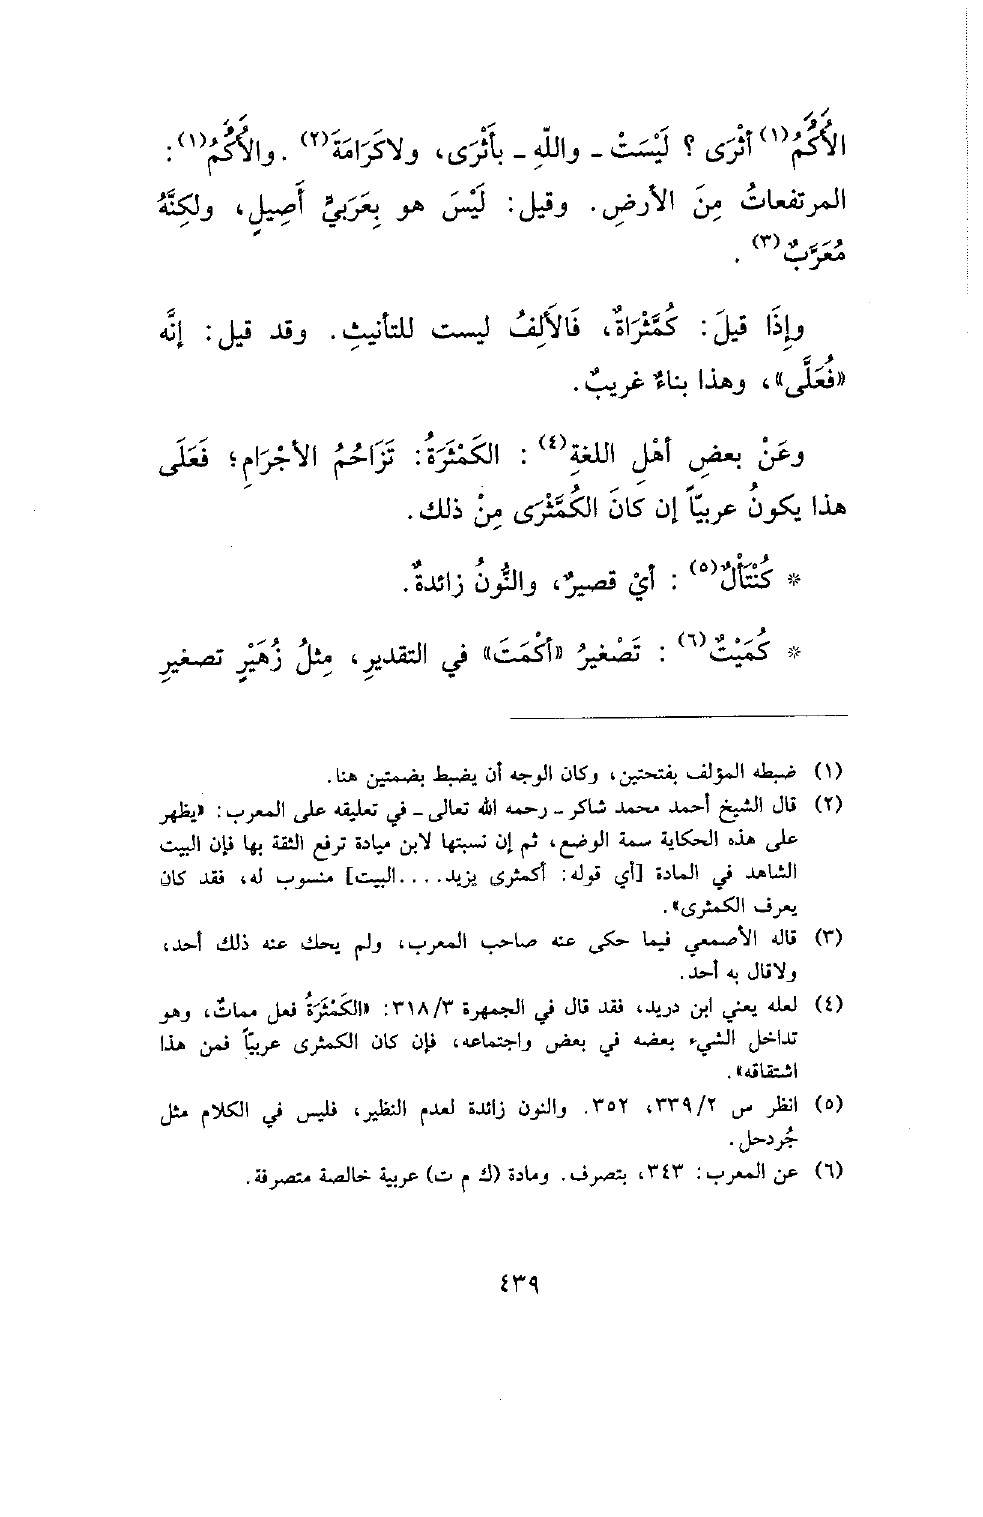 الأُكُمُ(١) أثْرَى ؟ لَيْسَتْ ـ واللّهِ ـ بأَثْرَى، ولا كَرَامَةَ(٢) . والأُكُمُ(١) :
المرتفعاتُ مِنَ الأرضِ. وقيل: لَيْسَ هو بِعَرَبيٍّ أَصِيلٍ، ولكِنَّهُ
مُعَرَّبٌ(٣) .
وإِذَا قيلَ: كُمَّثْرَاةٌ، فَالأَلِفُ ليست للتأنيثِ. وقد قيل: إنَّه
«فُعَلَّى»، وهذا بناءٌ غريبٌ.
وعَنْ بعضِ أهْلِ اللغةِ(٤) : الكَمْثَرَةُ: تَزَاحُمُ الأجْرَامِ؛ فَعَلَى
هذا يكونُ عربيّاً إن كانَ الكُمَّثْرَى مِنْ ذلك.
* كُنْتَأْلٌ(٥) : أيْ قصيرٌ، والنُّونُ زائدةٌ.
* كُمَيْتٌ(٦) : تَصْغيرُ «أكْمَتَ» في التقديرِ، مِثلُ زُهَيْرٍ تصغيرِ
(١) ضبطه المؤلف بفتحتين، وكان الوجه أن يضبط بضمتين هنا.
(٢) قال الشيخ أحمد محمد شاكر ـ رحمه الله تعالى ـ في تعليقه على المعرب: «يظهر
على هذه الحكاية سمة الوضع، ثم إن نسبتها لابن ميادة ترفع الثقة بها فإن البيت
الشاهد في المادة [أي قوله: أكمثرى يزيد.... البيت] منسوب له، فقد كان
يعرف الكمثرى».
(٣) قاله الأصمعي فيما حكى عنه صاحب المعرب، ولم يحك عنه ذلك أحد،
ولا قال به أحد.
(٤) لعله يعني ابن دريد، فقد قال في الجمهرة ٣/٣١٨: «الكَمْثَرَةُ فعل مماتٌ، وهو
تداخل الشيء بعضه في بعض واجتماعه، فإن كان الكمثرى عربيّاً فمن هذا
اشتقاقه».
(٥) انظر س ٢/٣٣٩، ٣٥٢. والنون زائدة لعدم النظير، فليس في الكلام مثل
جُردحل.
(٦) عن المعرب: ٣٤٣، بتصرف. ومادة (ك م ت) عربية خالصة متصرفة.
٤٣٩